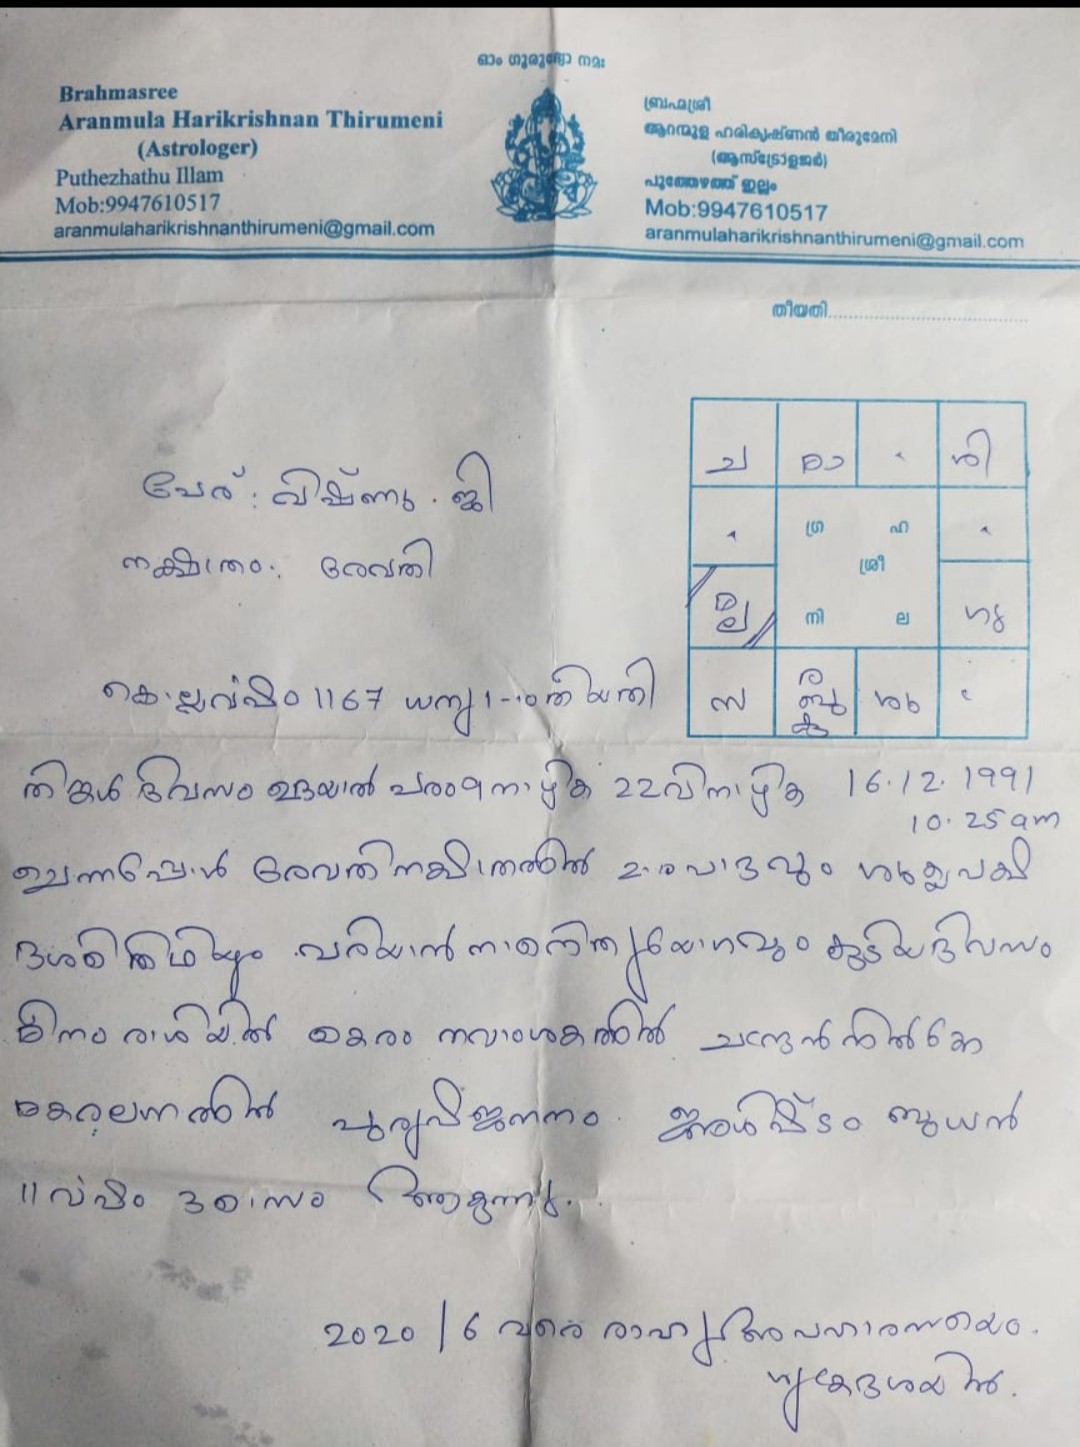 ഓം ഗുരുഭ്യോ നമഃ
Brahmasree
Aranmula Harikrishnan Thirumeni
(Astrologer)
Puthezhathu Illam
Mob:9947610517
aranmulaharikrishnanthirumeni@gmail.com
ബ്രഹ്മശ്രീ
ആറന്മുള ഹരികൃഷ്ണൻ തിരുമേനി
(ആസ്ട്രോളജർ)
പുത്തേഴത്ത് ഇല്ലം
Mob:9947610517
aranmulaharikrishnanthirumeni@gmail.com
തീയതി
ച മാ ശി
ഗ്ര ഹ
ശ്രീ
ല നി ല ഗു
സ ര ബു കു ശു
പേര് : വിഷ്ണു . ജി
നക്ഷത്രം : രേവതി
കൊല്ലവർഷം 1167 ധനു 1-ാംതീയതി
തിങ്കൾ ദിവസം ഉദയാൽ പരം 9 നാഴിക 22 വിനാഴിക 16.12.1991
10.25 am
ചെന്നപ്പോൾ രേവതിനക്ഷത്രത്തിൽ പാദവും ശുക്ലപക്ഷ
ദശമിതിഥിയും വരിയാൻ നാമനിത്യയോഗവും കൂടിയദിവസം
മീനം രാശിയിൽ മകരം നവാംശകത്തിൽ ചന്ദ്രൻ നിൽക്കെ
മകരലഗ്നത്തിൽ ജനനം. ബുധൻ
11 വർഷം 3 മാസം ആകുന്നു.
2020/6 വരെ രാഹു അപഹാരസമയം.
ശുക്രദശയിൽ.